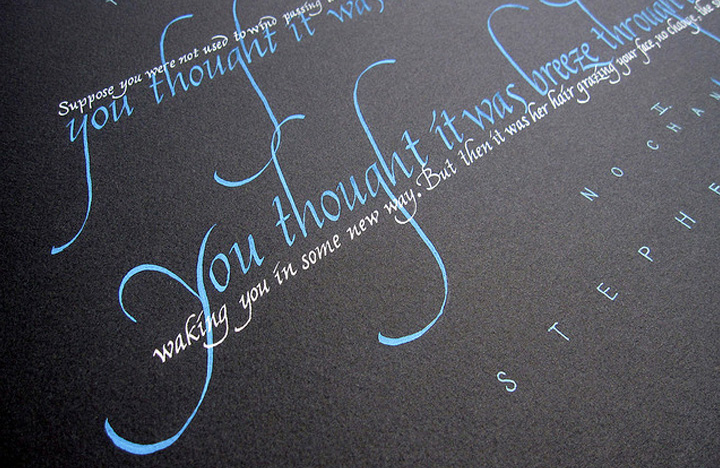 Suppose you were not used to wind passing
you thought it way
You thought it was breeze through
waking you in some new way. But then it was her hair grazing your face, no change, the
II
NO CHAN
STEPHE